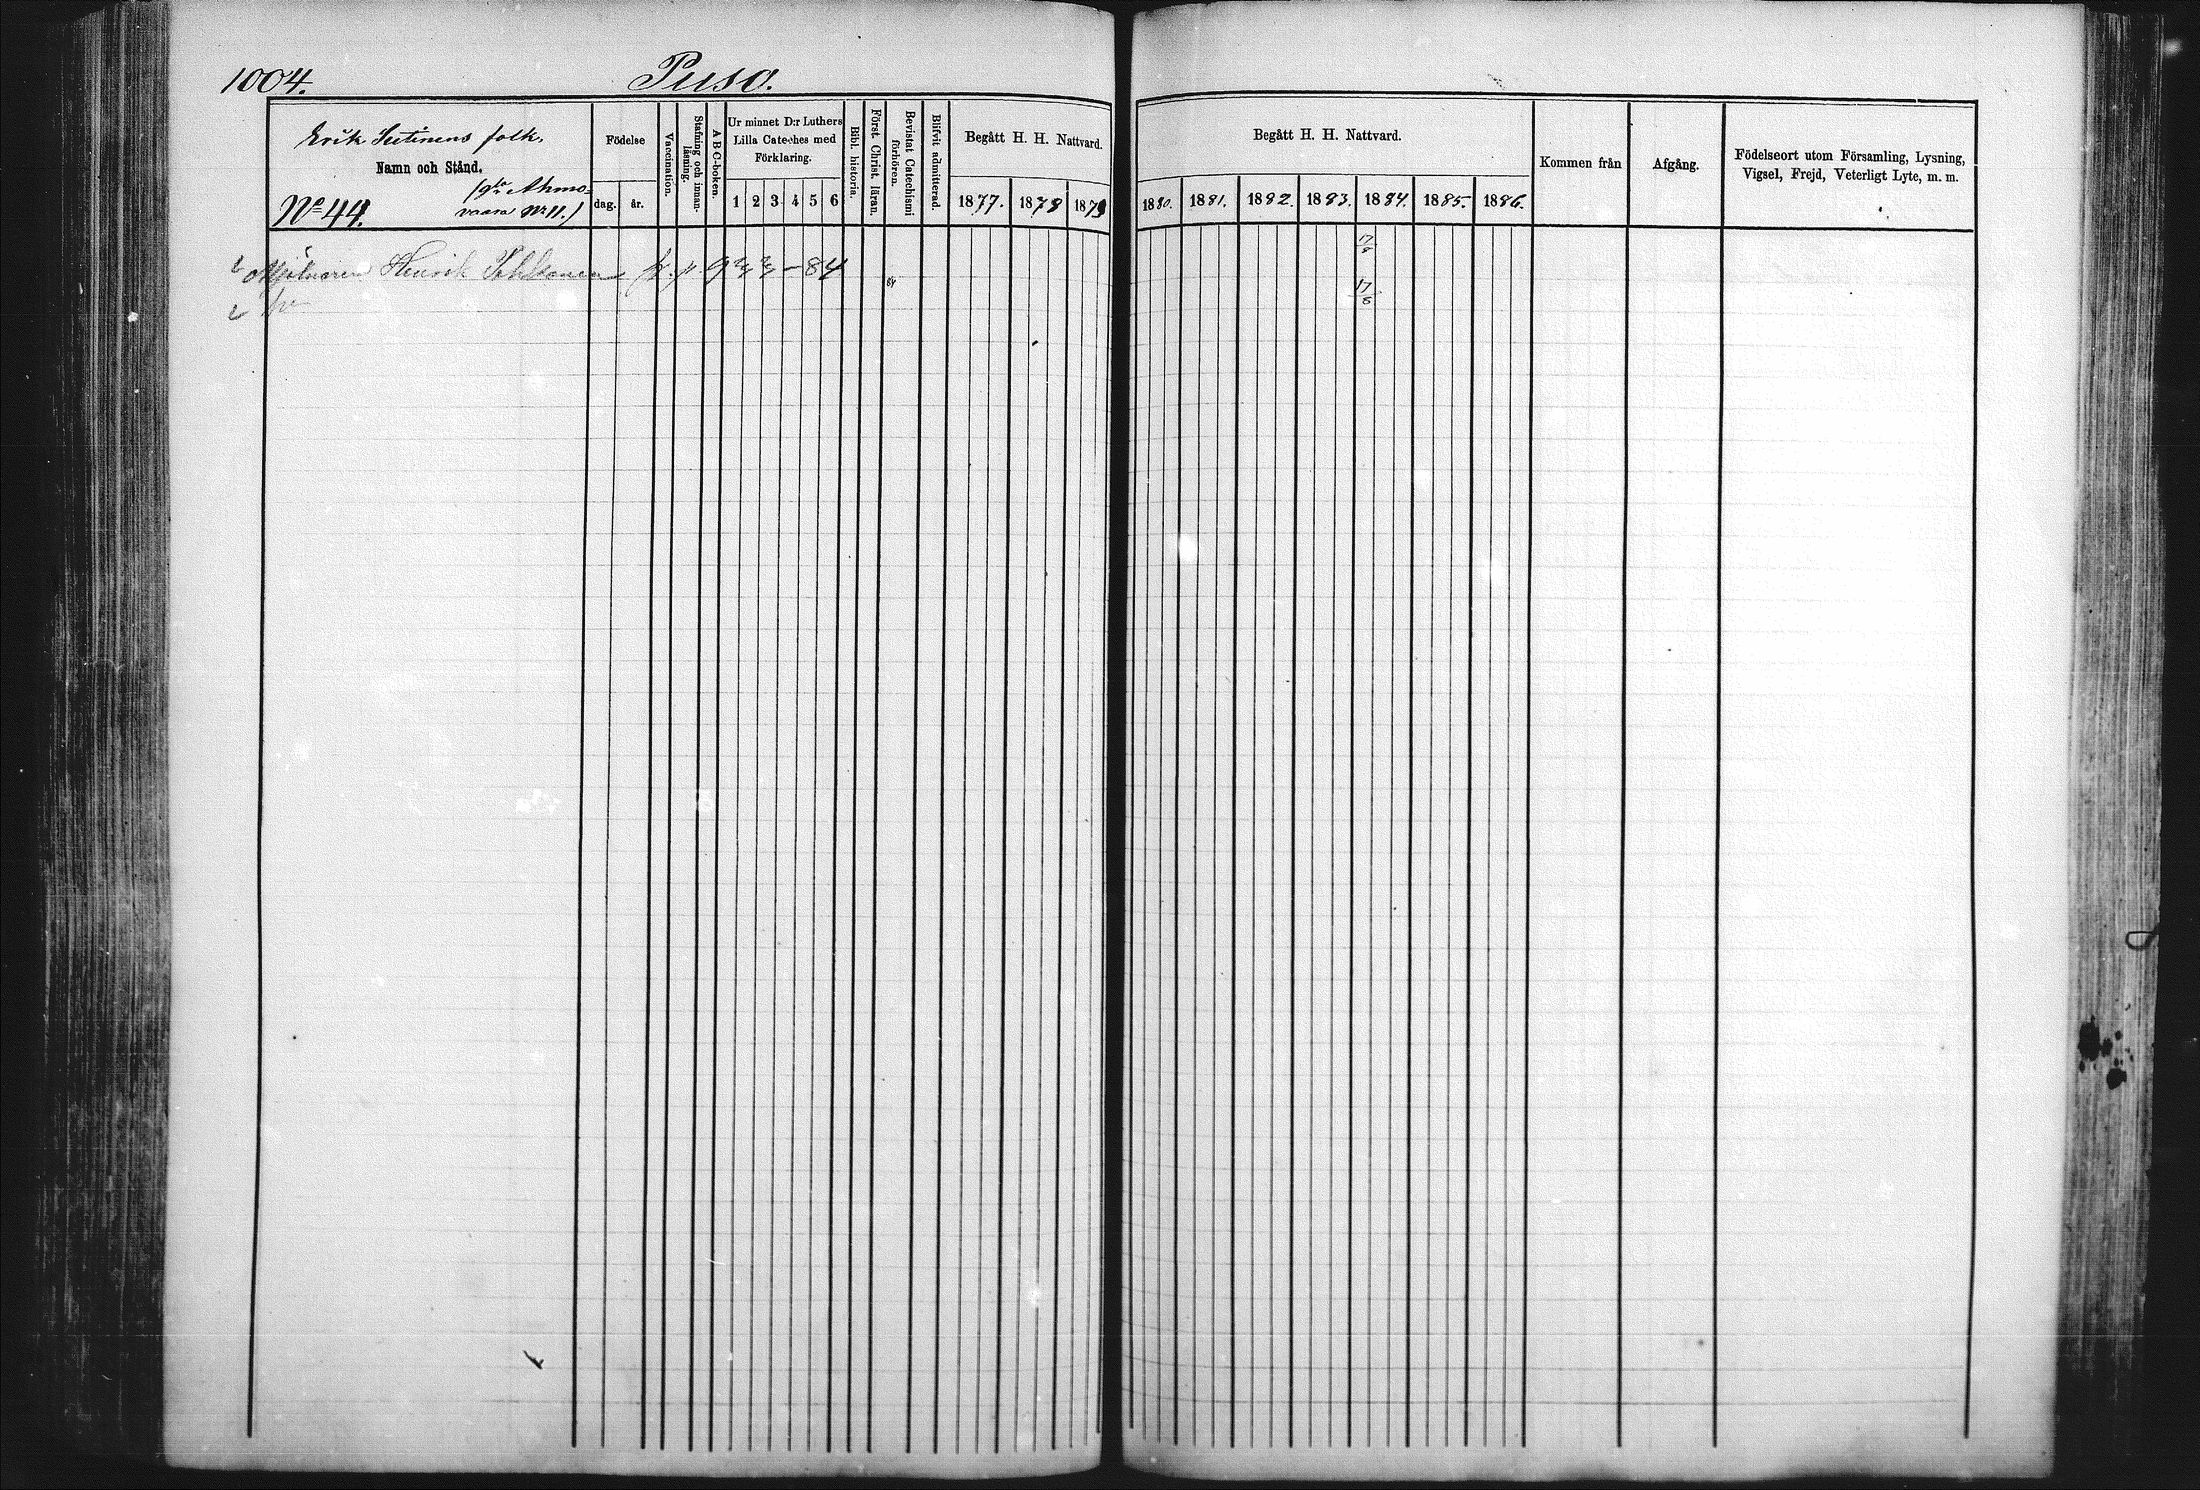 1004. Puso.
Erik Sutinens folk.
Namn och Stånd.
No 44.
vaara No 11.)
Födelse
dag. år.
Vaccination.
Stafning och innanläsning.
A B C-boken.
Ur minnet D:r Luthers
Lilla Cateches med
Förklaring.
1 2 3 4 5 6
Bibl. historia.
Först. Christ. läran.
Bevistat Catechismi förhören.
Blifvit admitterad.
Begått H. H. Nattvard.
1877. 1878 1879
Begått H. H. Nattvard.
1880. 1881. 1882. 1883. 1884. 1885. 1886.
Kommen från
Afgång.
Födelseort utom Församling, Lysning,
Vigsel, Frejd, Veterligt Lyte, m. m.
Mjölnaren Henrik 84
17/6